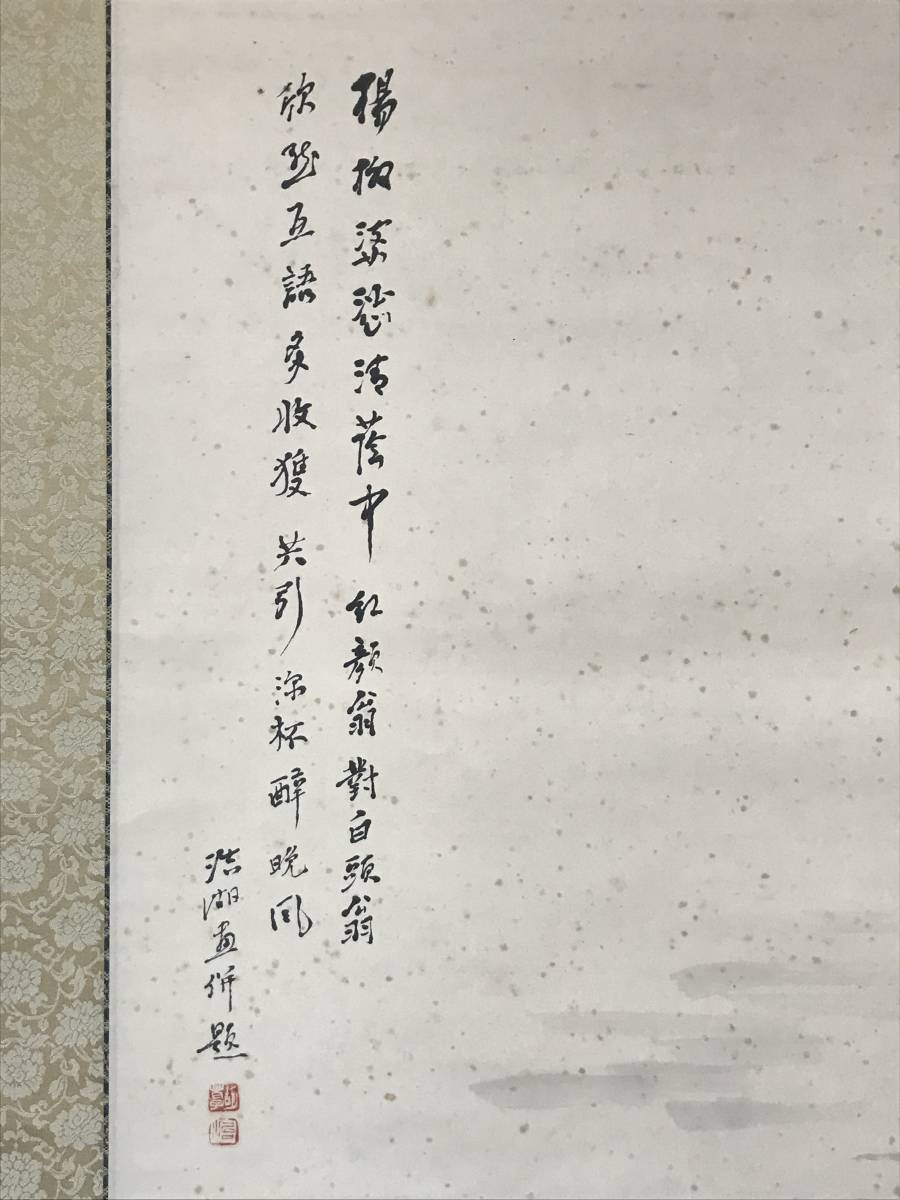 楊柳梁邊清蔭中 紅顏翁對白頭翁
欣然互語多收獲 共引深杯醉晚風
浩湖畫併題